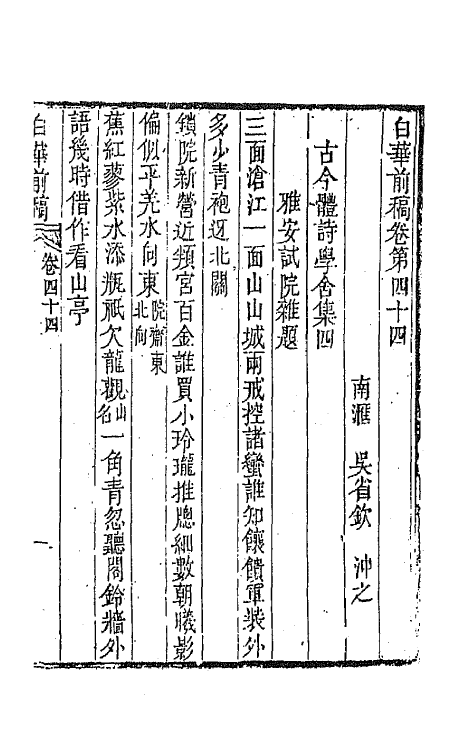 白華前稿卷第四十四
南滙　吳省欽　沖之
古今體詩學舍集四
雅安試院雜題
三面滄江一面山山城兩戒控諸蠻誰知饟饋軍裝外
多少青袍迓北關
鎖院新營近頖宮百金誰買小玲瓏推牕細數朝曦影
偏似平羌水向東院齋東北向
蕉紅蓼紫水添瓶祇欠龍觀山名一角青忽聽閣鈴牆外
語幾時借作看山亭
白華前稿　卷四十四　一